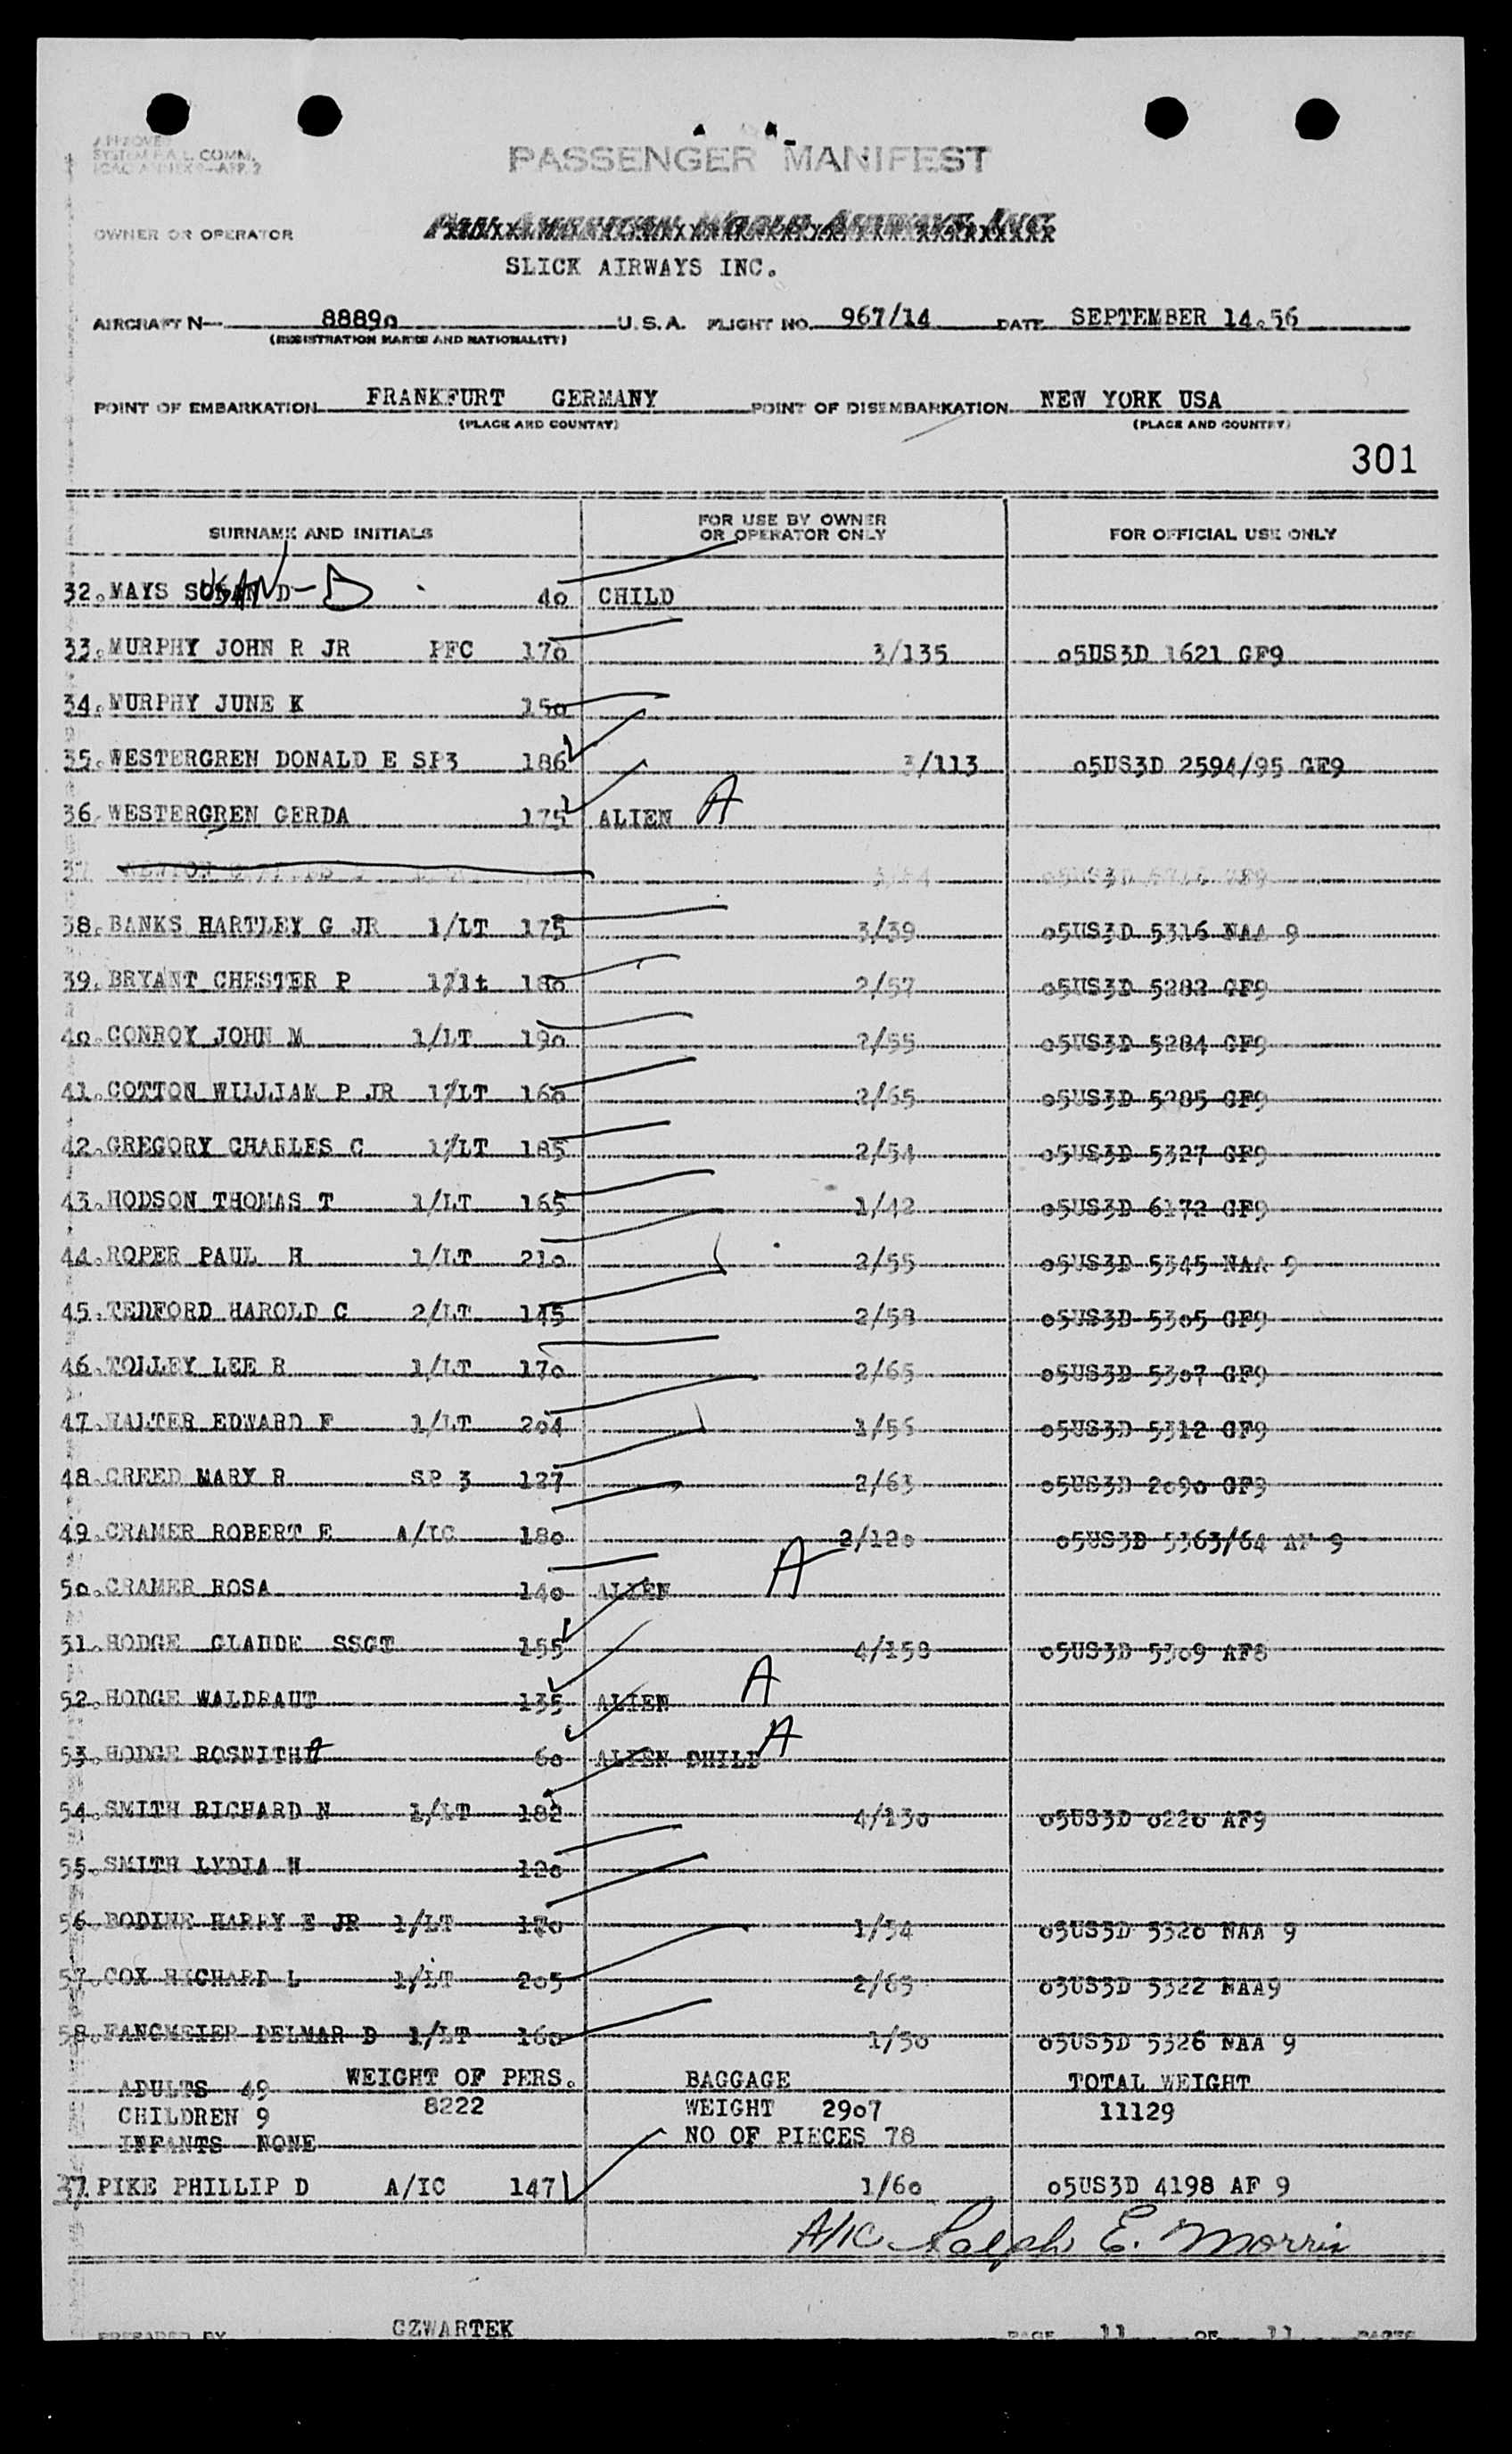 APPROVED
SYSTEM F.A.L. COMM.
ICAO ANNEX 9—APP. 2
PASSENGER MANIFEST
OWNER OR OPERATOR PAN AMERICAN WORLD AIRWAYS INC
SLICK AIRWAYS INC.
AIRCRAFT N— 8889o U.S.A. FLIGHT NO. 967/14 DATE SEPTEMBER 14.56
(REGISTRATION MARKS AND NATIONALITY)
POINT OF EMBARKATION FRANKFURT GERMANY POINT OF DISEMBARKATION NEW YORK USA
(PLACE AND COUNTRY) (PLACE AND COUNTRY)
301
SURNAME AND INITIALS FOR USE BY OWNER OR OPERATOR ONLY FOR OFFICIAL USE ONLY
32. MAYS SUSAN D 4o CHILD
33. MURPHY JOHN R JR PFC 17o 3/135 o5US3D 1621 GF9
34. MURPHY JUNE K 15o
35. WESTERGREN DONALD E SP3 186 3/113 o5US3D 2594/95 GF9
36. WESTERGREN GERDA 175 ALIEN A
37
38. BANKS HARTLEY G JR 1/LT 175 3/39 o5US3D 5316 NAA 9
39. BRYANT CHESTER P 1/lt 18o 2/57 o5US3D 5282 GF9
4o. CONROY JOHN M 1/LT 19o 2/55 o5US3D 5284 GF9
41. COTTON WILLIAM P JR 1/LT 16o 2/65 o5US3D 5285 GF9
42. GREGORY CHARLES C 1/LT 185 2/54 o5US3D 5327 GF9
43. HODSON THOMAS T 1/LT 165 1/42 o5US3D 6172 GF9
44. ROPER PAUL H 1/LT 21o 2/55 o5US3D 5345 NAA 9
45. TEDFORD HAROLD C 2/LT 145 2/58 o5US3D 53o5 GF9
46. TOLLEY LEE R 1/LT 17o 2/65 o5US3D 53o7 GF9
47. WALTER EDWARD F 1/LT 2o4 1/56 o5US3D 5312 GF9
48. CREED MARY R SP 3 127 2/63 o5US3D 2o9o GF9
49. CRAMER ROBERT E A/IC 18o 2/12o o5US3D 5363/64 AF 9
5o. CRAMER ROSA 14o ALIEN A
51. HODGE CLAUDE SSGT 155 4/158 o5US3D 53o9 AF8
52. HODGE WALDRAUT 135 ALIEN A
53. HODGE ROSNITHA 6o ALIEN CHILD A
54. SMITH RICHARD N 1/LT 182 4/13o o5US3D o22o AF9
55. SMITH LYDIA H 12o
56. BODINE HARRY E JR 1/LT 17o 1/54 o5US3D 532o NAA 9
57. COX RICHARD L 1/LT 2o5 2/65 o5US3D 5322 NAA9
58. FANGMEIER DELMAR D 1/LT 16o 1/5o o5US3D 5326 NAA 9
ADULTS 49 WEIGHT OF PERS. BAGGAGE TOTAL WEIGHT
CHILDREN 9 8222 WEIGHT 29o7 11129
INFANTS NONE NO OF PIECES 78
37. PIKE PHILLIP D A/IC 147 1/6o o5US3D 4198 AF 9
A/1C Ralph E. Morris
PREPARED BY CZWARTEK PAGE 11 OF 11 PAGES